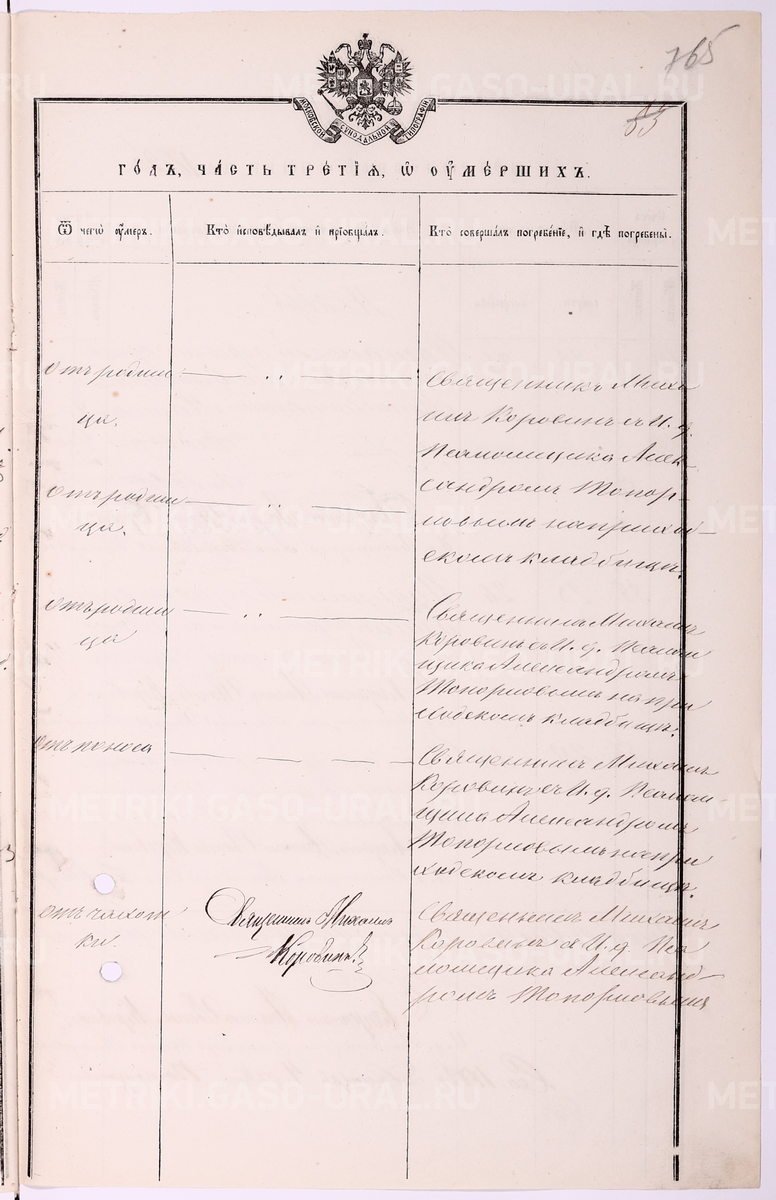 765
МОСКОВСКОЙ СѴНОДАЛЬНОЙ ТИПОГРАФІИ
го́дъ, ча́сть тре́тїѧ, ѡ҆ ᲂу҆ме́ршихъ.
Ѿ чегѡ̀ ᲂу҆́меръ.
Кто̀ и҆сповѣ́дывалъ и҆ прїѡбща́лъ.
Кто̀ соверша́лъ погребе́нїе, и҆ гдѣ̀ погребены̀.
отъ родим
ца.
Священникъ Миха
илъ Коровинъ съ И. д.
Псаломщика Алек-
сандромъ Топор-
ковымъ на приход-
скомъ кладбищѣ.
отъ родим
ца.
отъ родим
ца
Священникъ Михаилъ
Коровинъ съ И. д. Псалом
щика Александромъ
Топорковымъ на при
ходскомъ кладбищѣ.
отъ поноса
Священникъ Михаилъ
Коровинъ съ И. д. Псалом
щика Александромъ
Топорковымъ на при
ходскомъ кладбищѣ.
отъ чахот
ки.
Священникъ Михаилъ
Коровинъ.
Священникъ Михаилъ
Коровинъ съ И. д. Пса
ломщика Александ-
ромъ Топорковымъ
METRIKI.GASO-URAL.RU